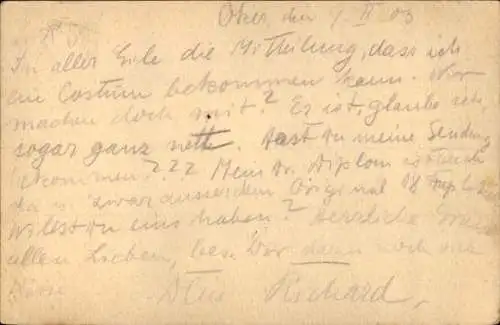 Oker, den 9. II 03
In aller Eile die Mittheilung, dass ich
ein Costüm bekommen kann. Wir
machen doch mit? Es ist, glaube ich,
sogar ganz nett. Hast du meine Sendung
bekommen??? Mein Dr. Diplom ist auch
da u. zwar ausserdem Original 18
Willst du eins haben? Herzliche
allen Lieben, bes. Dir dann noch
Dein Richard,